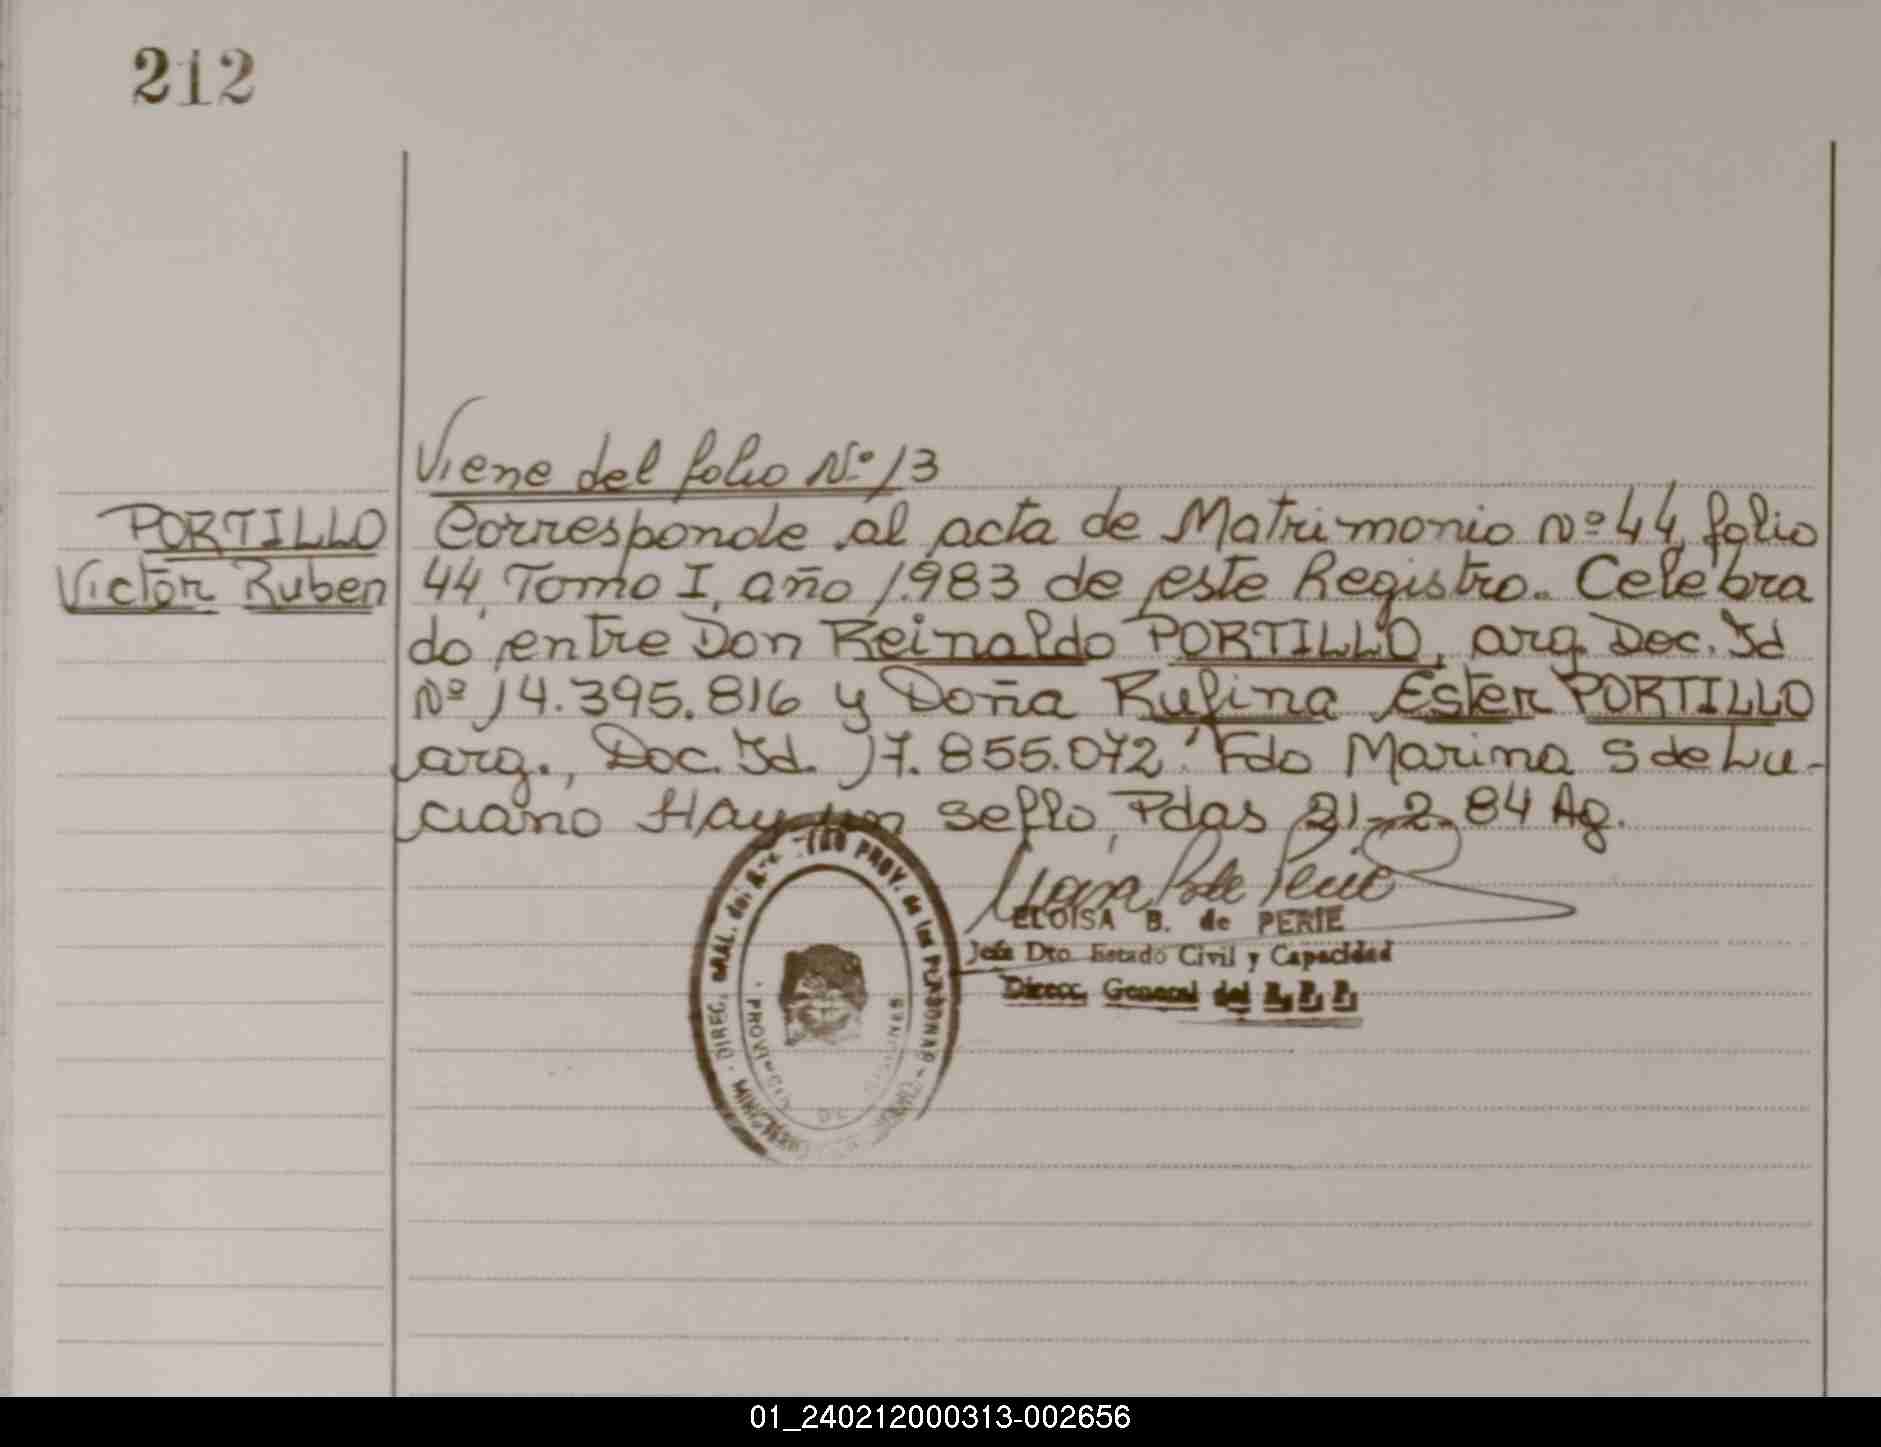 212
Viene del folio Nº 13
PORTILLO
Victor Ruben
Corresponde al acta de Matrimonio Nº 44, folio
44, Tomo I, año 1.983 de este Registro. Celebra
do entre Don Reinaldo PORTILLO, arg. Doc. Id
Nº 14.395.816 y Doña Rufina Ester PORTILLO
arg., Doc. Id. 17.855.072. Fdo Marina S de Lu-
ciano Hay un sello, Pdas 21-2-84 Ag.
ELOISA B. de PERIE
Jefa Dto. Estado Civil y Capacidad
Direcc. General del R. P. P.
DIREC. GRAL. del PROV. de las PERSONAS
PROVINCIA DE MISIONES
01_240212000313-002656